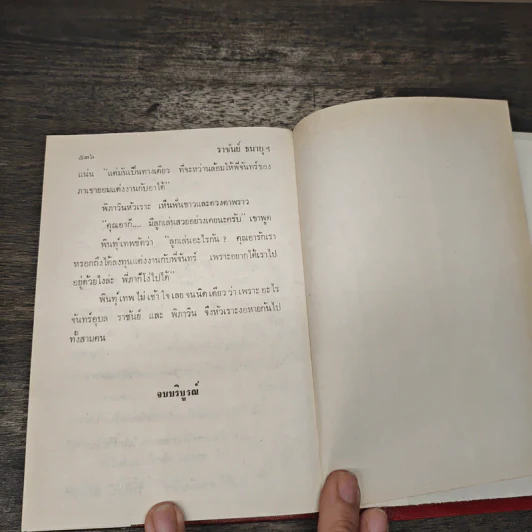 ๕๓๖
ราชันย์ ธนายุ ๆ
แน่น “แต่มันเป็นทางเดียว ที่จะหว่านล้อมให้พี่จันทร์ของ
ภาเขายอมแต่งงานกับอาได้”
พิภาวินหัวเราะ เห็นฟันขาวและดวงตาพราว
“คุณอาก็.... มีลูกเล่นสวยอย่างเคยนะครับ” เขาพูด
พินทุ์เทพขัดว่า “ลูกเล่นอะไรกัน ? คุณอารักเรา
หรอกถึงได้ลงทุนแต่งงานกับพี่จันทร์ เพราะอยากได้เราไป
อยู่ด้วยไงล่ะ พี่ภาก็โง่ไปได้”
พินทุ์เทพไม่เข้าใจเลยจนนิดเดียวว่าเพราะอะไร
จันทร์อุบล ราชันย์ และ พิภาวิน จึงหัวเราะงอหายกันไป
ทั้งสามคน
จบบริบูรณ์